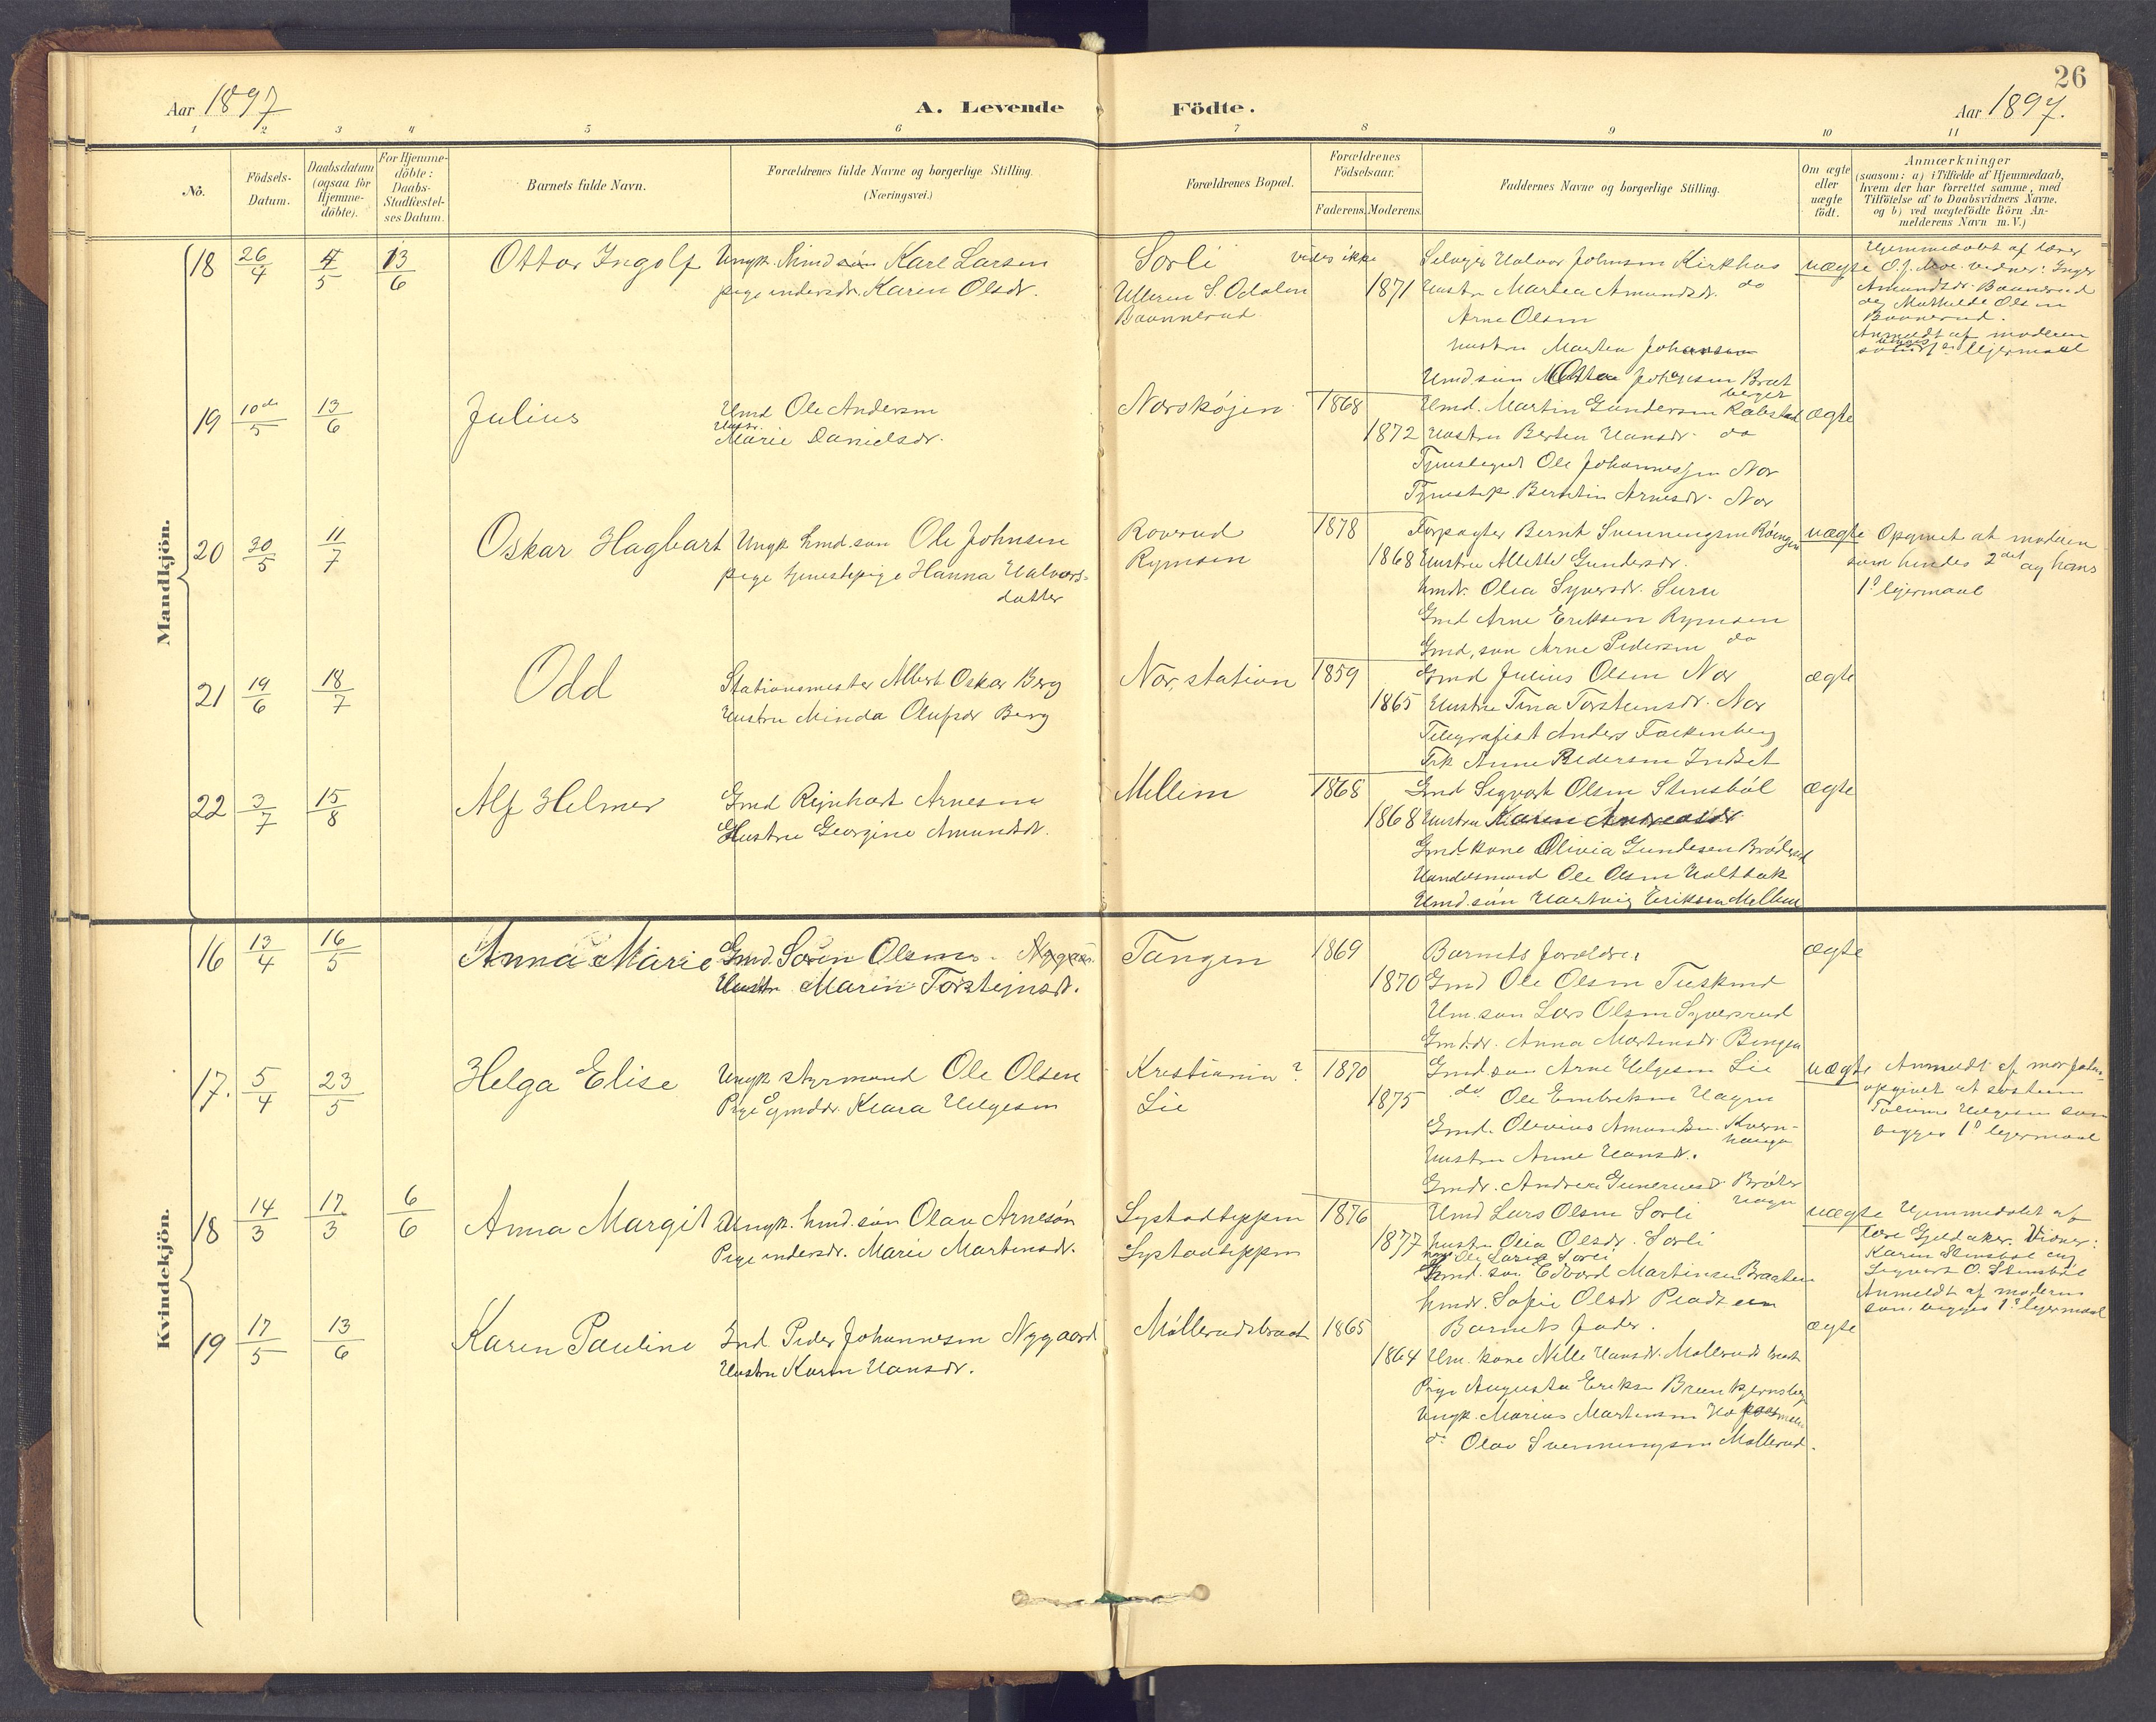 26
Aar 1897
A. Levende Födte.
Aar 1897.
1 2 3 4 5 6 7 8 9 10 11
No.
Födsels-Datum.
Daabsdatum (ogsaa for Hjemme-döbte).
For Hjemme-döbte: Daabs-Stadfæstel-ses Datum.
Barnets fulde Navn.
Forældrenes fulde Navne og borgerlige Stilling. (Næringsvei.)
Forældrenes Bopæl.
Forældrenes Födselsaar.
Faderens. Moderens.
Faddernes Navne og borgerlige Stilling.
Om ægte eller uægte födt.
Anmærkninger
(saasom: a) i Tilfælde af Hjemmedaab,
hvem der har forrettet samme, med
Tilföielse af to Daabsvidners Navne.
og b) ved uægtefödte Börn An-
melderens Navn m. V.)
Mandkjön.
18 26/4 4/5 13/6 Ottar Ingolf
Ungk. Karl Larsen
pige indersdr. Karen Olsdr.
Sorli vides ikke
Ulleren S. Odalen 1871
Baannerud
Selveier Halvor Johnsen Kirkhus
Hustru Martea Amundsdr. do
Arne Olsen
hustru Marten Johansen
uægte
Hjemmedøbt af lærer
Amundsdr. Baannerud
og Mathilde Olsen
Baannerud.
Anmeldt af moderen
lejermaal
19 10de/5 13/6 Julius
Hmd Ole Andersen
Hustr.
Marie Danielsdr.
Norskøjen 1868
1872
Hmd. Martin Gundersen Rabstad
Hustru Berthe Hansdr. do
Ole Johannessen Nor
Arnesdr. Nor
ægte
20 30/5 11/7 Oskar Hagbart
Ungk. hmd. søn Ole Johnsen
pige tjenestepige Hanna Halvors-
datter
Roverud 1878
Rymoen 1868
Forpagter Bernt Svenningsen
Hustru Gundersdr.
hmdr. Olea Syversdr.
Gmd Arne Eriksen Rymoen
Gmd, søn Arne Pedersen do
uægte
Opgivet at moderen
som hendes 2det og hans
1ste lejermaal
21 19/6 18/7 Odd
Stationsmester Albert Oskar Berg
Hustru Minda Olufsdr Berg
Nor, station 1859
1865
Gmd Julius Olsen Nor
Hustru Tina Torstensdr. Nor
Telegrafist Anders Falkenberg
Frk Anne Pedersen Indset
ægte
22 3/7 15/8 Alf Helmer
Gmd Rejnhart Arnesen
Hustru Georgine Amundsdr.
Mellem 1868
1868
Gmd Sigvart Olsen Stensböl
Hustru Karen Andreasdr
Gmd. kone Olivia Gundesen
Handelsmand Ole Olsen Holtbak
Hmd. søn Hartvig Eriksen Mellem
ægte
Kvindekjön.
16 13/4 16/5 Anna Marie
Gmd. Søren Olsen.
Hustr. Maren Torstejnsdr.
Tangen 1869
1870
Barnets forældre
Gmd Ole Olsen
Hm. søn Lars Olsen Syverrud
Gmd. dr. Anna Martinsdr. Bingen
ægte
17. 5/4 23/5 Helga Elise
Ungk styrmand Ole Olsen
Pige Gmddr. Klara Helgesen
Kristiania? 1870
Lie 1875
Gmd. søn Arne Helgesen Lie
do Ole Embretsen Hagen
Gmd. Olivius Amundsen.
Hustru Anne Hansdr.
Gmdr. Andrea
uægte
Anmeldt af morfader
opgivet at søsteren
Helgesen som
begges 1ste lejermaal
18 14/3 17/3 6/6 Anna Margit
Ungk. hmd. søn Olav Arnesøn
Pige indersdr. Marie Martinsdr.
Systadteppen 1876
Systadteppen 1877
Hmd Lars Olsen Sorli
hustru Olia Olsdr. Sorli
Hmd. søn Edvard Martinsen Braaten
hmdr. Sofie Olsdr
uægte
Hjemmedøbt af
Vidner:
Karen Stensböl og
Sigvart O. Stensböl
Anmeldt af moderen
som begges 1ste lejermaal
19 17/5 13/6 Karen Pauline
Ind. Peder Johannesen Nygaard
Hustru Karen Hansdr.
Møllerudsbraat 1865
1864
Barnets fader.
Hm. kone Nille Hansdr. Møllerudsbraat
Pige Augusta Eriksen
Ungk. Marius Martinsen
do Olav Svenningsen Møllerud.
ægte